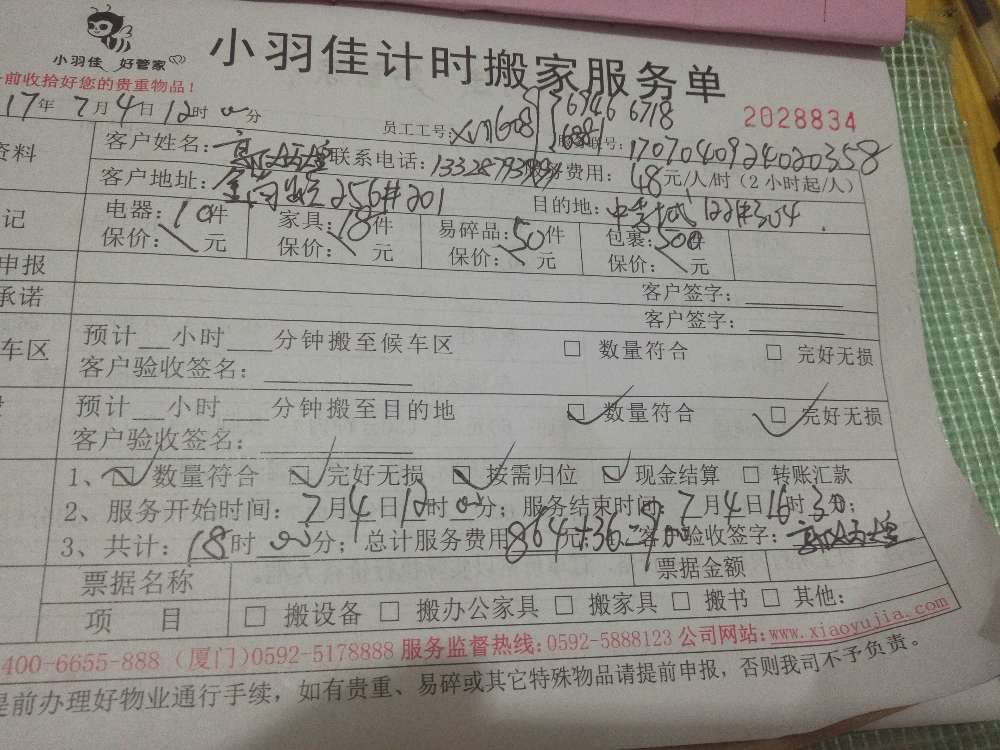 小羽佳 好管家
小羽佳计时搬家服务单
前收拾好您的贵重物品!
17年7月4日12时00分
员工工号:XM608 6946 6718 688
2028834
客户姓名: 联系电话: 号:1707040924020358
费用:48元/人/时(2小时起/人)
客户地址: 256#201 目的地: 122#304
资料
电器:10件 家具:18件 易碎品:50件 包裹:50件
保价: 元 保价: 元 保价: 元 保价: 元
记
申报
客户签字:
承诺
客户签字:
预计 小时 分钟搬至候车区 □ 数量符合 □ 完好无损
车区
客户验收签名:
预计 小时 分钟搬至目的地 ☑ 数量符合 ☑ 完好无损
客户验收签名:
1、☑ 数量符合 ☑ 完好无损 ☑ 按需归位 ☑ 现金结算 □ 转账汇款
2、服务开始时间:7月4日12时00分;服务结束时间:7月4日16时30分;
3、共计:18时00分;总计服务费用864元+36=900 客户验收签字:
票据名称 票据金额
项 目 □ 搬设备 □ 搬办公家具 □ 搬家具 □ 搬书 □ 其他:
400-6655-888 (厦门)0592-5178888 服务监督热线:0592-5888123 公司网站:www.xiaoyujia.com
提前办理好物业通行手续,如有贵重、易碎或其它特殊物品请提前申报,否则我司不予负责。